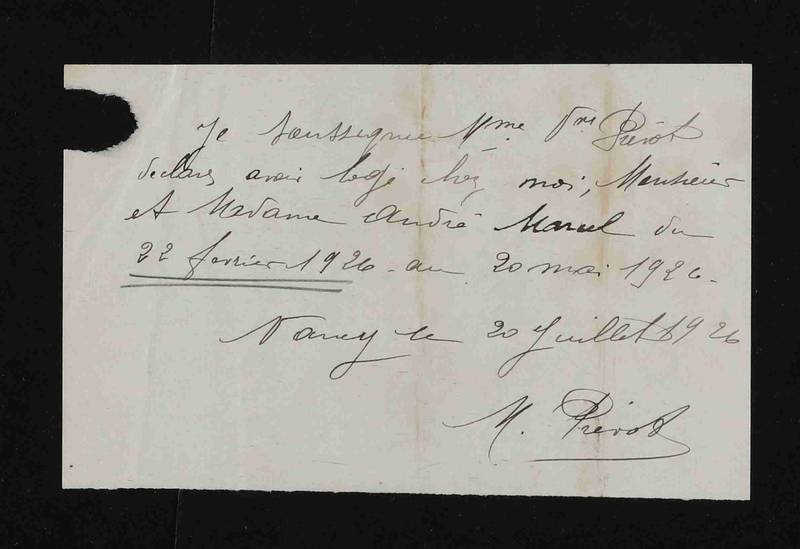 Je soussignée Mme Vve Prévot
déclare avoir logé chez moi, Monsieur
et Madame André Marcel du
22 fevrier 1926 - au 20 mai 1926 -
Nancy le 20 Juillet 1926
M. Prévot